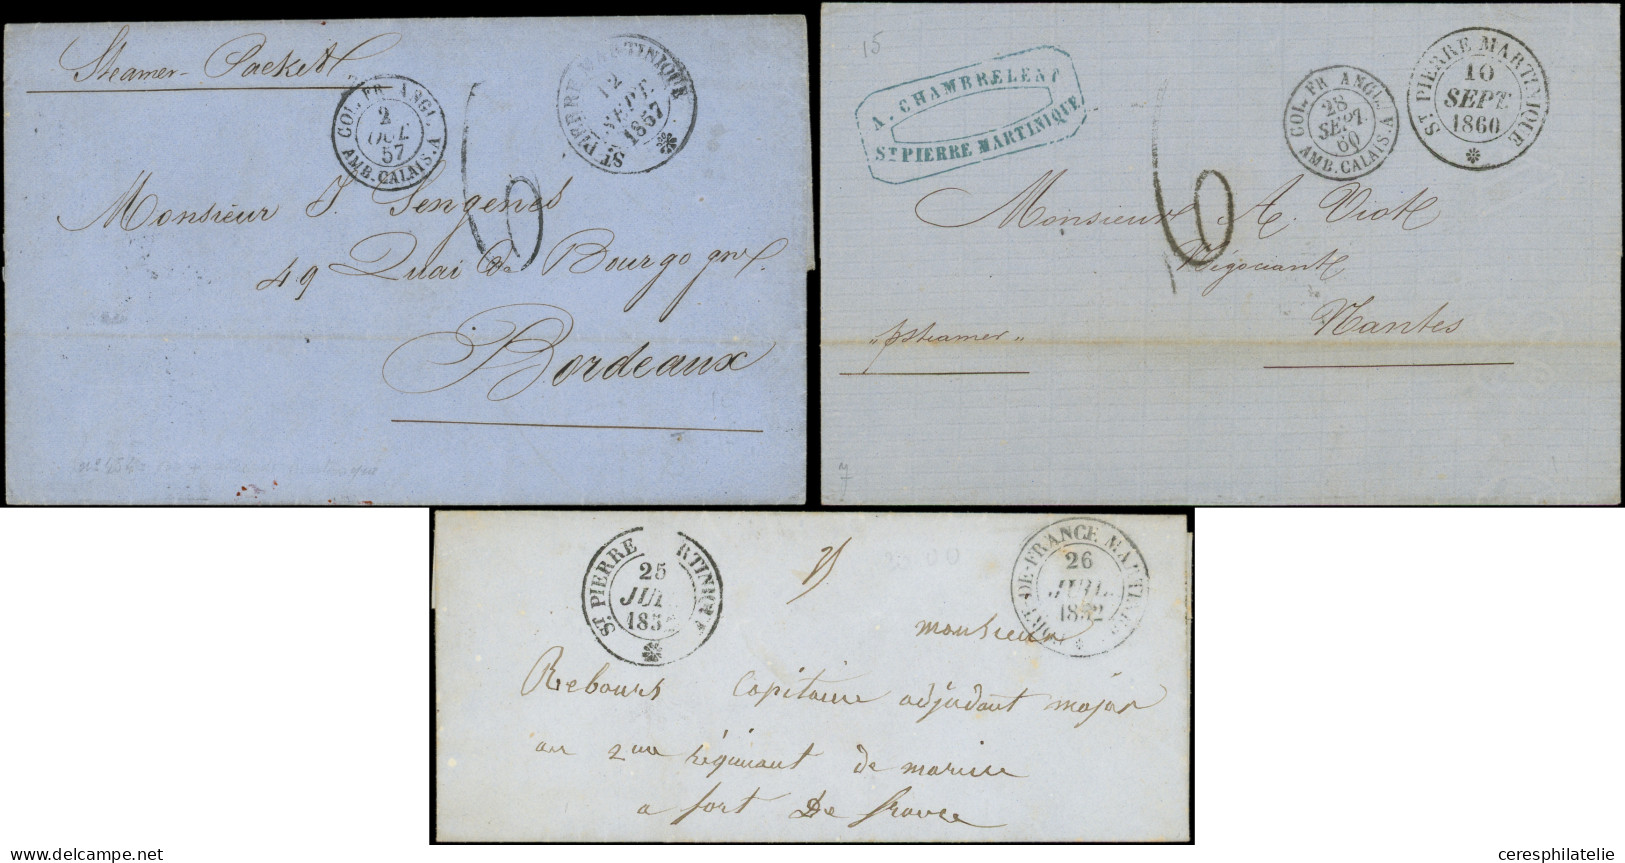 Steamer-Packet
COL. FR. ANGL. A
2
OCT.
57
AMB. CALAIS. A
ST PIERRE MARTINIQUE
12
SEPT.
1857
Monsieur J. Sengenès
49 Quai de Bourgogne
Bordeaux
15
A. CHAMBRELENT
ST PIERRE MARTINIQUE
COL. FR. ANGL. V.
28
SEPT.
60
AMB. CALAIS.
ST PIERRE MARTINIQUE
10
SEPT.
1860
Monsieur A. Viot
Négociant
Nantes
"p Steamer"
ST PIERRE MARTINIQUE
25
JUIL.
1852
FORT-DE-FRANCE MARTINIQUE
26
JUIL.
1852
monsieur
Rebours Capitaine adjudant major
au 2me régiment de marine
a fort De france
delcampe.net
ceresphilatelie